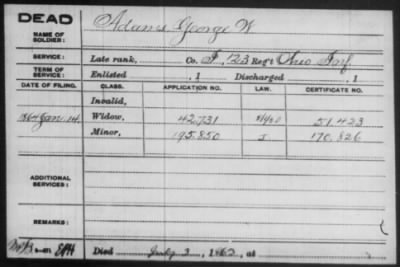 DEAD
NAME OF SOLDIER: Adams George W.
SERVICE: Late rank, Co. F, 123 Reg't Ohio Inf.
TERM OF SERVICE: Enlisted , 1 Discharged , 1
DATE OF FILING. CLASS. APPLICATION NO. LAW. CERTIFICATE NO.
Invalid,
1864 Jan. 14 Widow, 42,731 51,423
Minor, 195,850 170,826
ADDITIONAL SERVICES:
REMARKS:
Died July 3, 1863, at